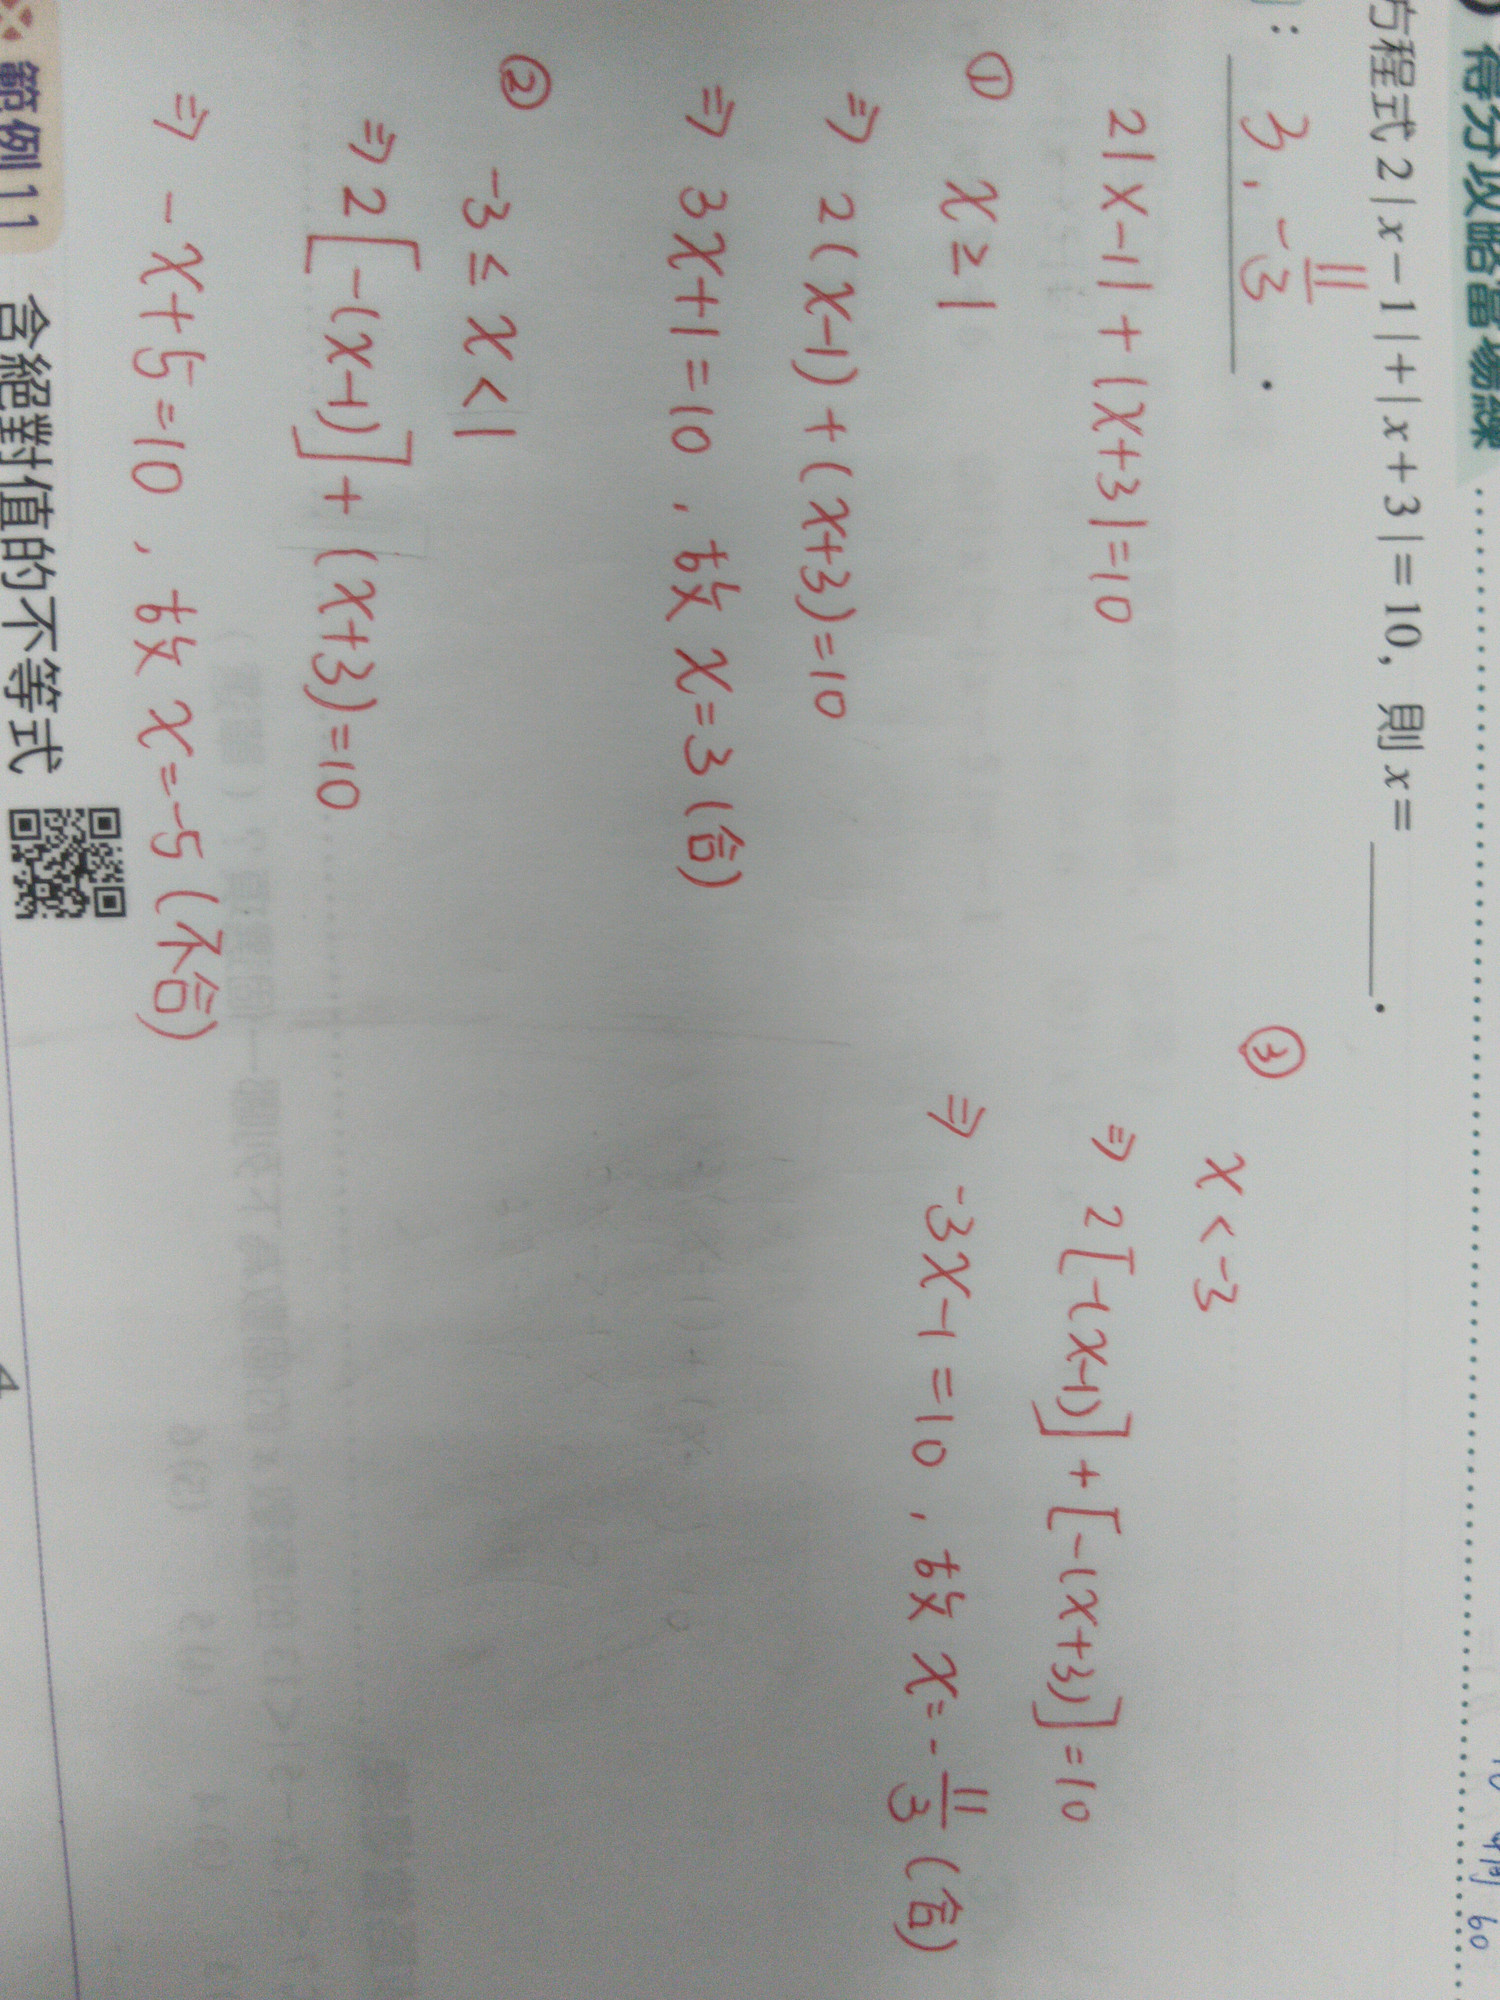 得分攻略當場練
方程式 2|x−1|+|x+3|=10, 則 x= ______.
: 3, -11/3 .
2|x-1|+|x+3|=10
① x≥1
⇒ 2(x-1)+(x+3)=10
⇒ 3x+1=10, 故 x=3 (合)
② -3≤x<1
⇒ 2[-(x-1)]+(x+3)=10
⇒ -x+5=10, 故 x=-5 (不合)
③ x<-3
⇒ 2[-(x-1)]+[-(x+3)]=10
⇒ -3x-1=10, 故 x=-11/3 (合)
範例11 含絕對值的不等式
60